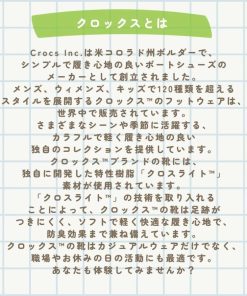 クロックスとは
Crocs Inc.は米コロラド州ボルダーで、
シンプルで履き心地の良いボートシューズの
メーカーとして創立されました。
メンズ、ウィメンズ、キッズで120種類を超える
スタイルを展開するクロックス™のフットウェアは、
世界中で販売されています。
さまざまなシーンや季節に活躍する、
カラフルで軽く履き心地の良い
独自のコレクションを提供しています。
クロックス™ブランドの靴には、
独自に開発した特性樹脂「クロスライト™」
素材が使用されています。
「クロスライト™」の技術を取り入れる
ことによって、クロックス™の靴は足跡が
つきにくく、ソフトで軽く快適な履き心地で、
防臭効果まで兼ね備えています。
クロックス™の靴はカジュアルウェアだけでなく、
職場やお休みの日の活動にも最適です。
あなたも体験してみませんか?